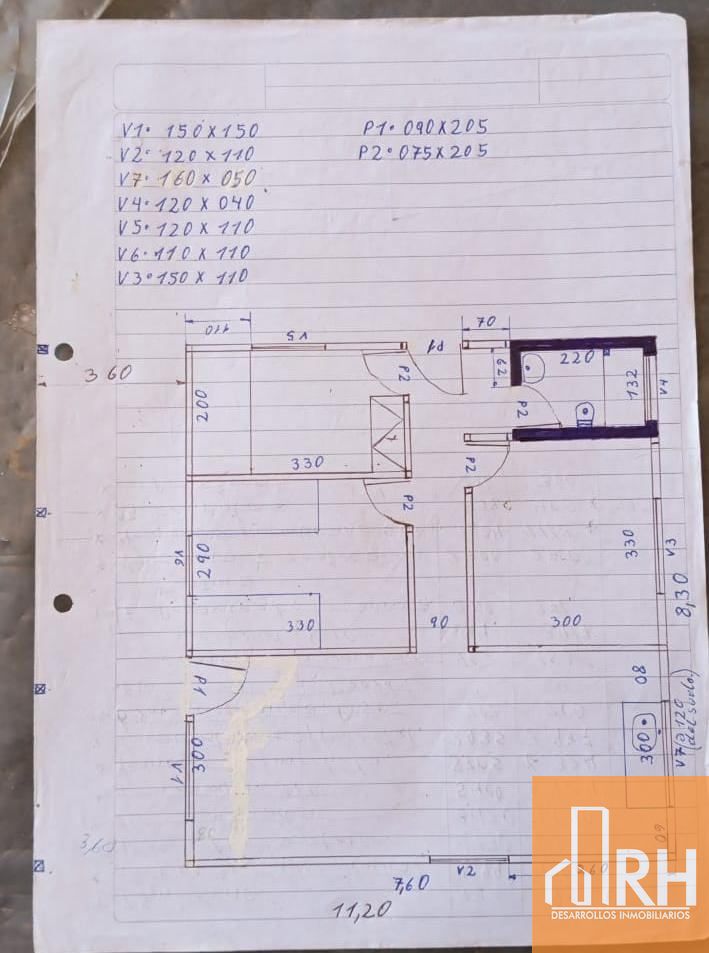 V1· 150 X 150
P1· 090 X 205
V2· 120 X 110
P2· 075 X 205
V7· 160 X 050
V4· 120 X 040
V5· 120 X 110
V6· 110 X 110
V3· 150 X 110
110
V5
P1
70
360
200
P2
62
220
132
V4
P2
330
P2
P2
V6
290
330
V3
330
90
300
8,30
P1
80
V1
300
300
V7 (a 120
del suelo)
80
60
3,60
V2
60
7,60
11,20
RH
DESARROLLOS INMOBILIARIOS